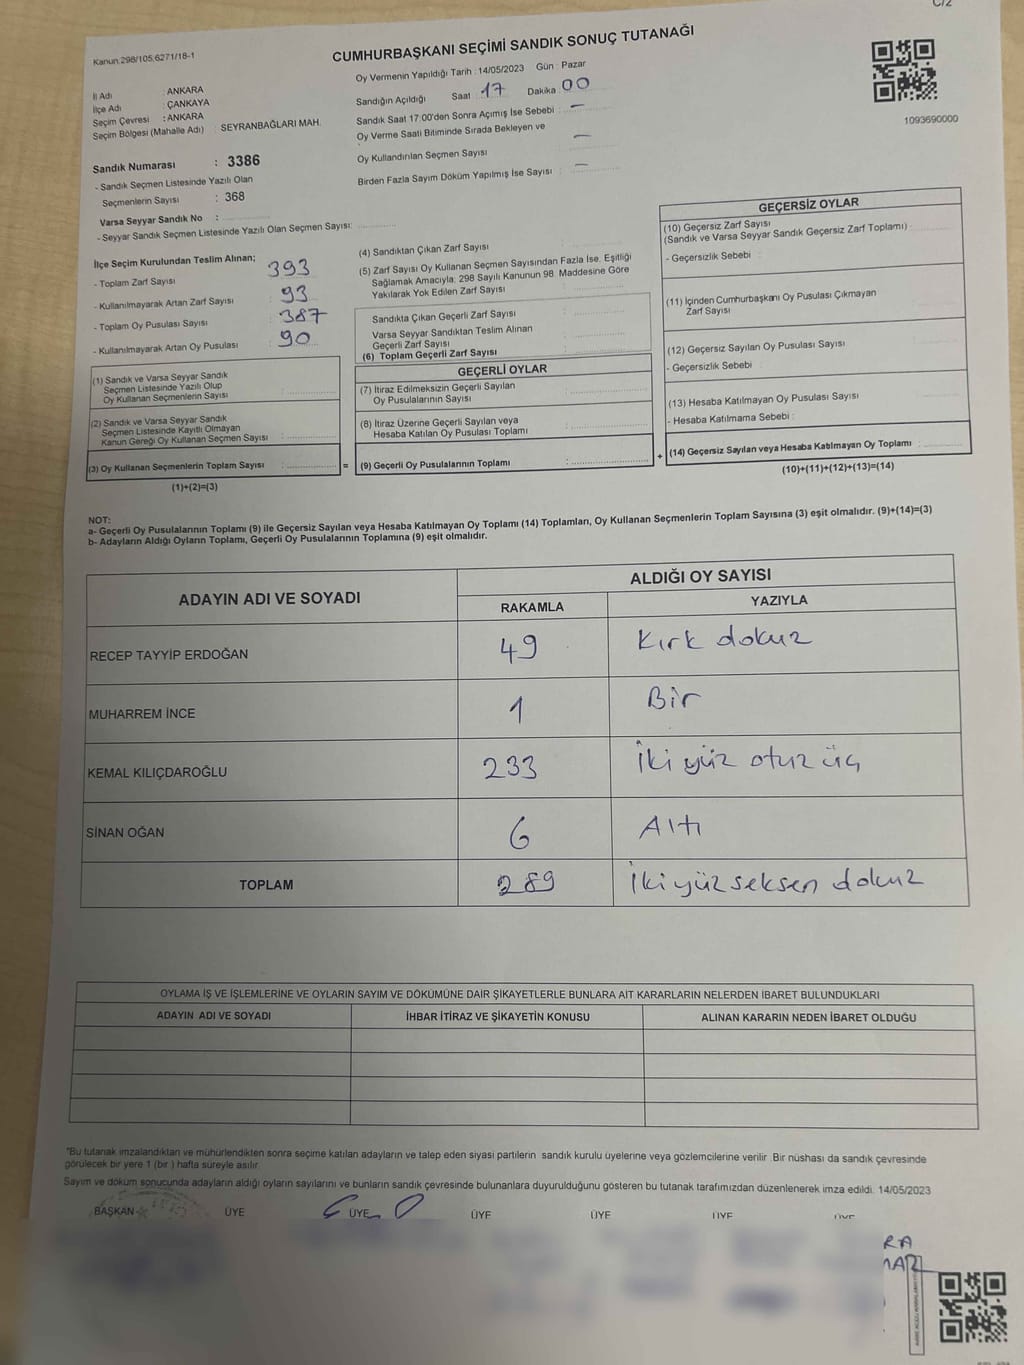 C/2
Kanun.298/105,6271/18-1
CUMHURBAŞKANI SEÇİMİ SANDIK SONUÇ TUTANAĞI
İl Adı : ANKARA
İlçe Adı : ÇANKAYA
Seçim Çevresi : ANKARA
Seçim Bölgesi (Mahalle Adı) : SEYRANBAĞLARI MAH.
Oy Vermenin Yapıldığı Tarih : 14/05/2023 Gün : Pazar
Sandığın Açıldığı Saat 17 Dakika 00
Sandık Saat 17:00'den Sonra Açımış İse Sebebi : —
Oy Verme Saati Bitiminde Sırada Bekleyen ve
Oy Kullandırılan Seçmen Sayısı —
Birden Fazla Sayım Döküm Yapılmış İse Sayısı : —
1093690000
Sandık Numarası : 3386
- Sandık Seçmen Listesinde Yazılı Olan
Seçmenlerin Sayısı : 368
Varsa Seyyar Sandık No :
- Seyyar Sandık Seçmen Listesinde Yazılı Olan Seçmen Sayısı:
İlçe Seçim Kurulundan Teslim Alınan;
- Toplam Zarf Sayısı : 393
- Kullanılmayarak Artan Zarf Sayısı : 93
- Toplam Oy Pusulası Sayısı : 387
- Kullanılmayarak Artan Oy Pusulası : 90
(1) Sandık ve Varsa Seyyar Sandık
Seçmen Listesinde Yazılı Olup
Oy Kullanan Seçmenlerin Sayısı :
(2) Sandık ve Varsa Seyyar Sandık
Seçmen Listesinde Kayıtlı Olmayan
Kanun Gereği Oy Kullanan Seçmen Sayısı :
(3) Oy Kullanan Seçmenlerin Toplam Sayısı : =
(1)+(2)=(3)
(4) Sandıktan Çıkan Zarf Sayısı :
(5) Zarf Sayısı Oy Kullanan Seçmen Sayısından Fazla İse, Eşitliği
Sağlamak Amacıyla; 298 Sayılı Kanunun 98. Maddesine Göre
Yakılarak Yok Edilen Zarf Sayısı :
Sandıkta Çıkan Geçerli Zarf Sayısı :
Varsa Seyyar Sandıktan Teslim Alınan
Geçerli Zarf Sayısı :
(6) Toplam Geçerli Zarf Sayısı :
GEÇERLİ OYLAR
(7) İtiraz Edilmeksizin Geçerli Sayılan
Oy Pusulalarının Sayısı :
(8) İtiraz Üzerine Geçerli Sayılan veya
Hesaba Katılan Oy Pusulası Toplamı :
(9) Geçerli Oy Pusulalarının Toplamı : +
GEÇERSİZ OYLAR
(10) Geçersiz Zarf Sayısı
(Sandık ve Varsa Seyyar Sandık Geçersiz Zarf Toplamı) :
- Geçersizlik Sebebi :
(11) İçinden Cumhurbaşkanı Oy Pusulası Çıkmayan
Zarf Sayısı :
(12) Geçersiz Sayılan Oy Pusulası Sayısı :
- Geçersizlik Sebebi :
(13) Hesaba Katılmayan Oy Pusulası Sayısı :
- Hesaba Katılmama Sebebi :
(14) Geçersiz Sayılan veya Hesaba Katılmayan Oy Toplamı :
(10)+(11)+(12)+(13)=(14)
NOT:
a- Geçerli Oy Pusulalarının Toplamı (9) ile Geçersiz Sayılan veya Hesaba Katılmayan Oy Toplamı (14) Toplamları, Oy Kullanan Seçmenlerin Toplam Sayısına (3) eşit olmalıdır. (9)+(14)=(3)
b- Adayların Aldığı Oyların Toplamı, Geçerli Oy Pusulalarının Toplamına (9) eşit olmalıdır.
ADAYIN ADI VE SOYADI ALDIĞI OY SAYISI
RAKAMLA YAZIYLA
RECEP TAYYİP ERDOĞAN 49 Kırk dokuz
MUHARREM İNCE 1 Bir
KEMAL KILIÇDAROĞLU 233 İki yüz otuz üç
SİNAN OĞAN 6 Altı
TOPLAM 289 İki yüz seksen dokuz
OYLAMA İŞ VE İŞLEMLERİNE VE OYLARIN SAYIM VE DÖKÜMÜNE DAİR ŞİKAYETLERLE BUNLARA AİT KARARLARIN NELERDEN İBARET BULUNDUKLARI
ADAYIN ADI VE SOYADI İHBAR İTİRAZ VE ŞİKAYETİN KONUSU ALINAN KARARIN NEDEN İBARET OLDUĞU
*Bu tutanak imzalandıktan ve mühürlendikten sonra seçime katılan adayların ve talep eden siyasi partilerin sandık kurulu üyelerine veya gözlemcilerine verilir. Bir nüshası da sandık çevresinde
görülecek bir yere 1 (bir ) hafta süreyle asılır.
Sayım ve döküm sonucunda adayların aldığı oyların sayılarını ve bunların sandık çevresinde bulunanlara duyurulduğunu gösteren bu tutanak tarafımızdan düzenlenerek imza edildi. 14/05/2023
BAŞKAN ÜYE ÜYE ÜYE ÜYE ÜYE ÜYE
RA